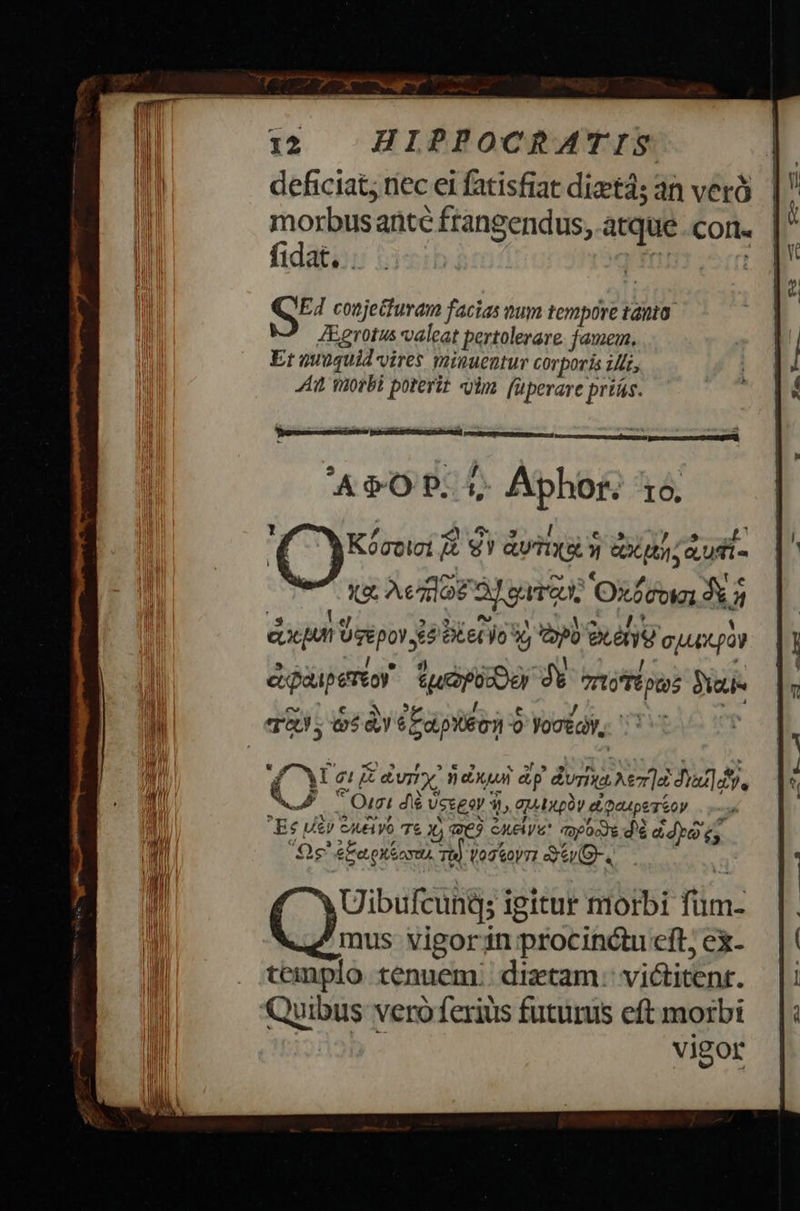 12 HIPPOCRATIS
deficiat, nec ei satisfiat diætâ; an verò
morbus antè frangendus, atque con-
fidat.
SEd conjecturam facias num tempore tanto
Ægrotus valeat pertolerare famem.
Et nunquid vires minuentur corporis illi,
An morbi poterit vim superare priùs.
ἈΦΟΡ. ί. Aphor. 10.
ὉΚόσοισι μὲν ὂν ἀυτίκα ἡ ἀκμὴ, ἀυτί-
κα λεπτῶς διαιτᾶν. Ὁκόσοισι δὲ ἡ
ἀκμὴ ὕστερον, ἐς ἐκεῖνο καὶ πρὸ ἐκείνου σμικρὸν
ἀφαιρετέον· ἔμπροσθεν δὲ πιοτέρως διαι-
τᾶν, ὡς ἂν ἐξαρκέσῃ ὁ νοσέων.
ΟἿσι μὲν ἀυτίχ' ἡ ἀκμὴ ἀρ' ἀυτίκα λεπτὰ διαιτᾶν,
Οἷσι δὲ ὕστερον ἡ, σμικρὸν ἀφαιρετέον
Ἐς μὲν ἐκεῖνό τε καὶ πρὸ ἐκείνε· πρόσθε δὲ ἁδρῶς,
Ὡς ἐξαρκέσσαι τῷ νοσέοντι σθένος.
QUibuscunq; igitur morbi sum-
mus vigor in procinctu est, ex-
templo tenuem diætam victitent.
Quibus verò seriùs futurus est morbi
vigor